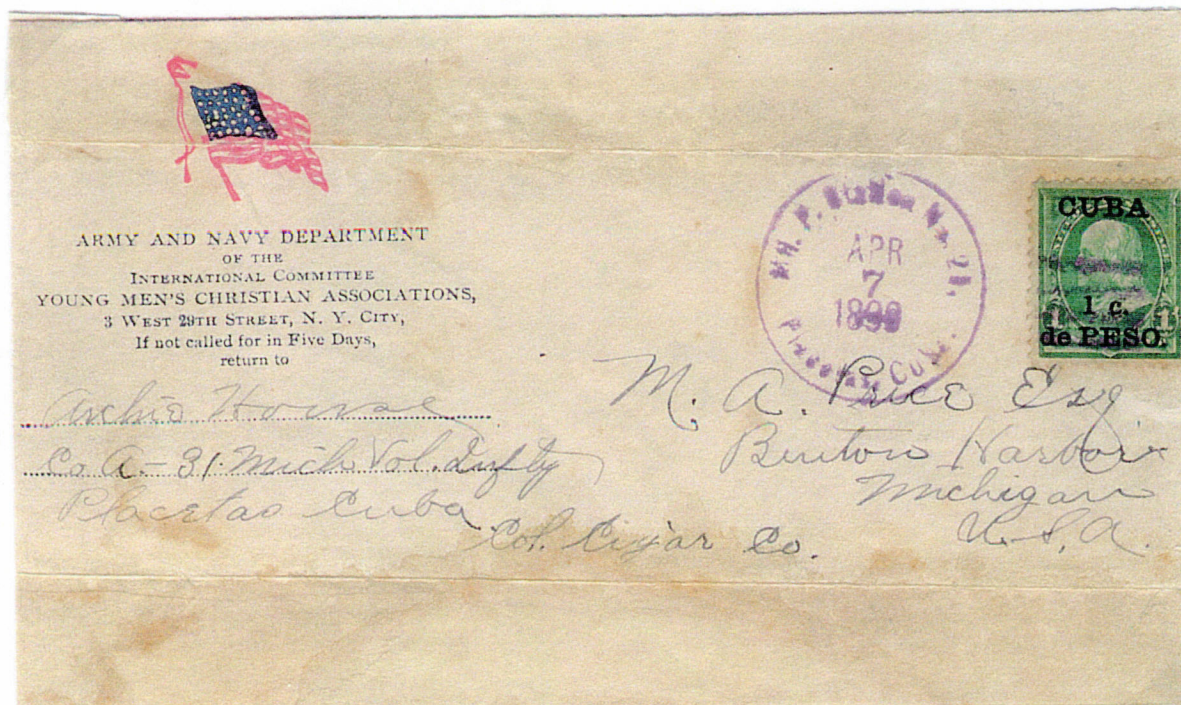 ARMY AND NAVY DEPARTMENT
OF THE
INTERNATIONAL COMMITTEE
YOUNG MEN'S CHRISTIAN ASSOCIATIONS,
3 WEST 29TH STREET, N. Y. CITY,
If not called for in Five Days,
return to
Archie
Co A - 31. Mich Vol. Infty
Placetas Cuba.
Col. Cigar Co.
Mil. P. Station No. 21,
APR
7
1899
Placetas, Cuba.
CUBA
1 c.
de PESO.
1 1
M. A. Price Esq
Benton Harbor
Michigan
U.S.A.